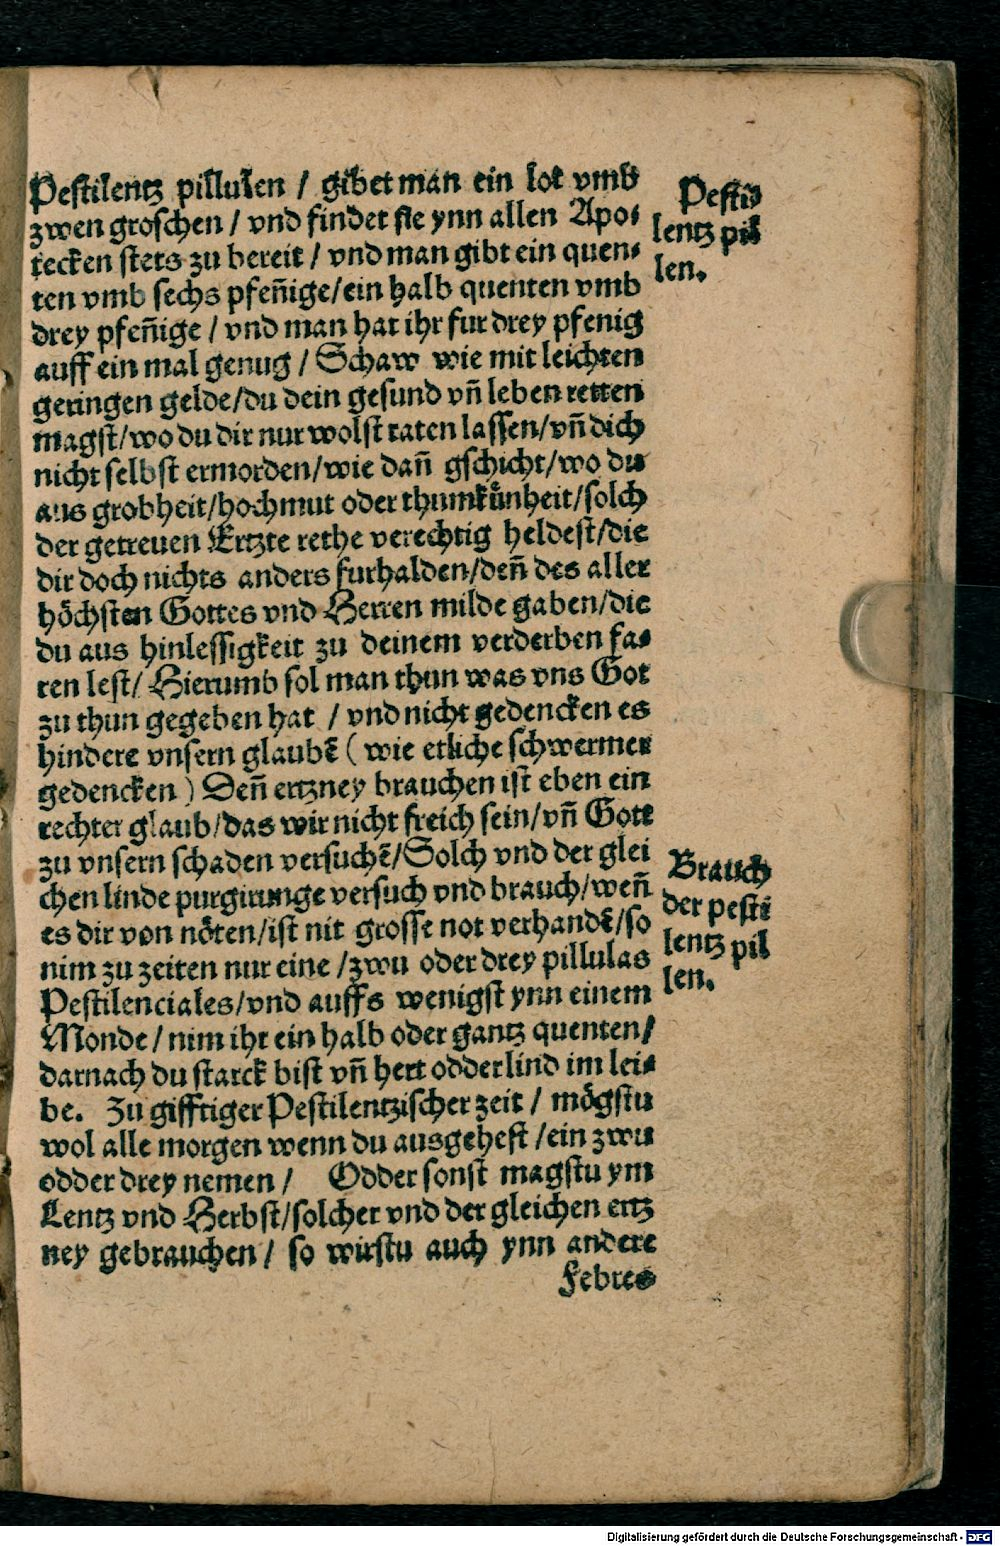 Pestilentz pillulen / gibet man ein lot vmb
zwen groschen / vnd findet sie ynn allen Apo⸗
tecken stets zu bereit / vnd man gibt ein quen⸗
ten vmb sechs pfen̄ige/ein halb quenten vmb
drey pfen̄ige / vnd man hat ihr fur drey pfenig
auff ein mal genug / Schaw wie mit leichten
geringen gelde/du dein gesund vn̄ leben retten
magst/wo du dir nur wolst raten lassen/vn̄ dich
nicht selbst ermorden/wie dan̄ gschicht/wo du
aus grobheit/hochmut oder thumkünheit/solch
der getreuen Ertzte rethe verechtig heldest/die
dir doch nichts anders furhalden/den̄ des aller
höchsten Gottes vnd Herren milde gaben/die
du aus hinlessigkeit zu deinem verderben fa⸗
ren lest/ Hierumb sol man thun was vns Got
zu thun gegeben hat / vnd nicht gedencken es
hindere vnsern glaubē ( wie etliche schwermer
gedencken ) Den̄ ertzney brauchen ist eben ein
rechter glaub/das wir nicht freich sein/vn̄ Gott
zu vnsern schaden versuchē/Solch vnd der glei
chen linde purgirunge versuch vnd brauch/wen̄
es dir von nöten/ist nit grosse not verhandē/so
nim zu zeiten nur eine /zwu oder drey pillulas
Pestilenciales/vnd auffs wenigst ynn einem
Monde / nim ihr ein halb oder gantz quenten/
darnach du starck bist vn̄ hert odder lind im lei⸗
be. Zu gifftiger Pestilentzischer zeit / mögstu
wol alle morgen wenn du ausgehest /ein zwu
odder drey nemen / Odder sonst magstu ym
Lentz vnd Herbst/solcher vnd der gleichen ertz
ney gebrauchen / so wirstu auch ynn andere
Febres
Pesti⸗
lentz pil
len.
Brauch
der pesti
lentz pil
len.
Digitalisierung gefördert durch die Deutsche Forschungsgemeinschaft - DFG